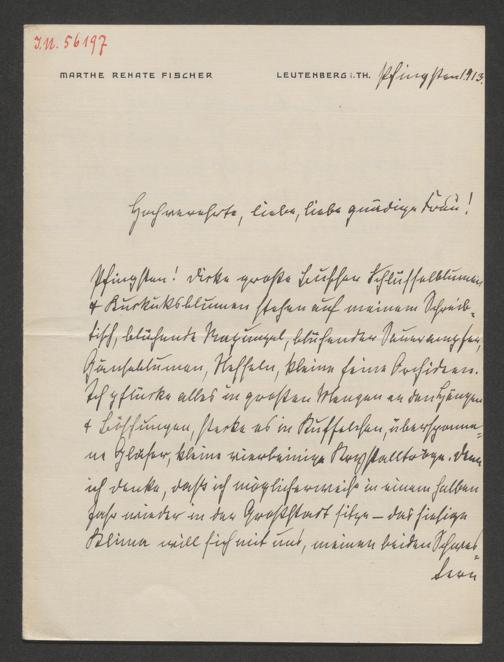 I.N. 56197
MARTHE RENATE FISCHER LEUTENBERG i. TH. Pfingsten 1913.
Hochverehrte, liebe, liebe gnädige Frau!
Pfingsten! Dicke große Büschel Schlüsselblumen
& Kuckuksblumen stehen auf meinem Schreib-
tisch, blühende, blühender Sauerampfer,
Gänseblumen, Nesseln, kleine feine Orchideen.
Ich pflücke alles in großen Mengen an den Hängen
& Böschungen, stecke es in
Gläser, kleine vierbeinige Krystalltröge. Denn
ich denke, daß ich möglicherweis in einem halben
Jahr wieder in der Großstadt sitze – das hiesige
Klima will sich mit uns, meinen beiden Schwes-
tern